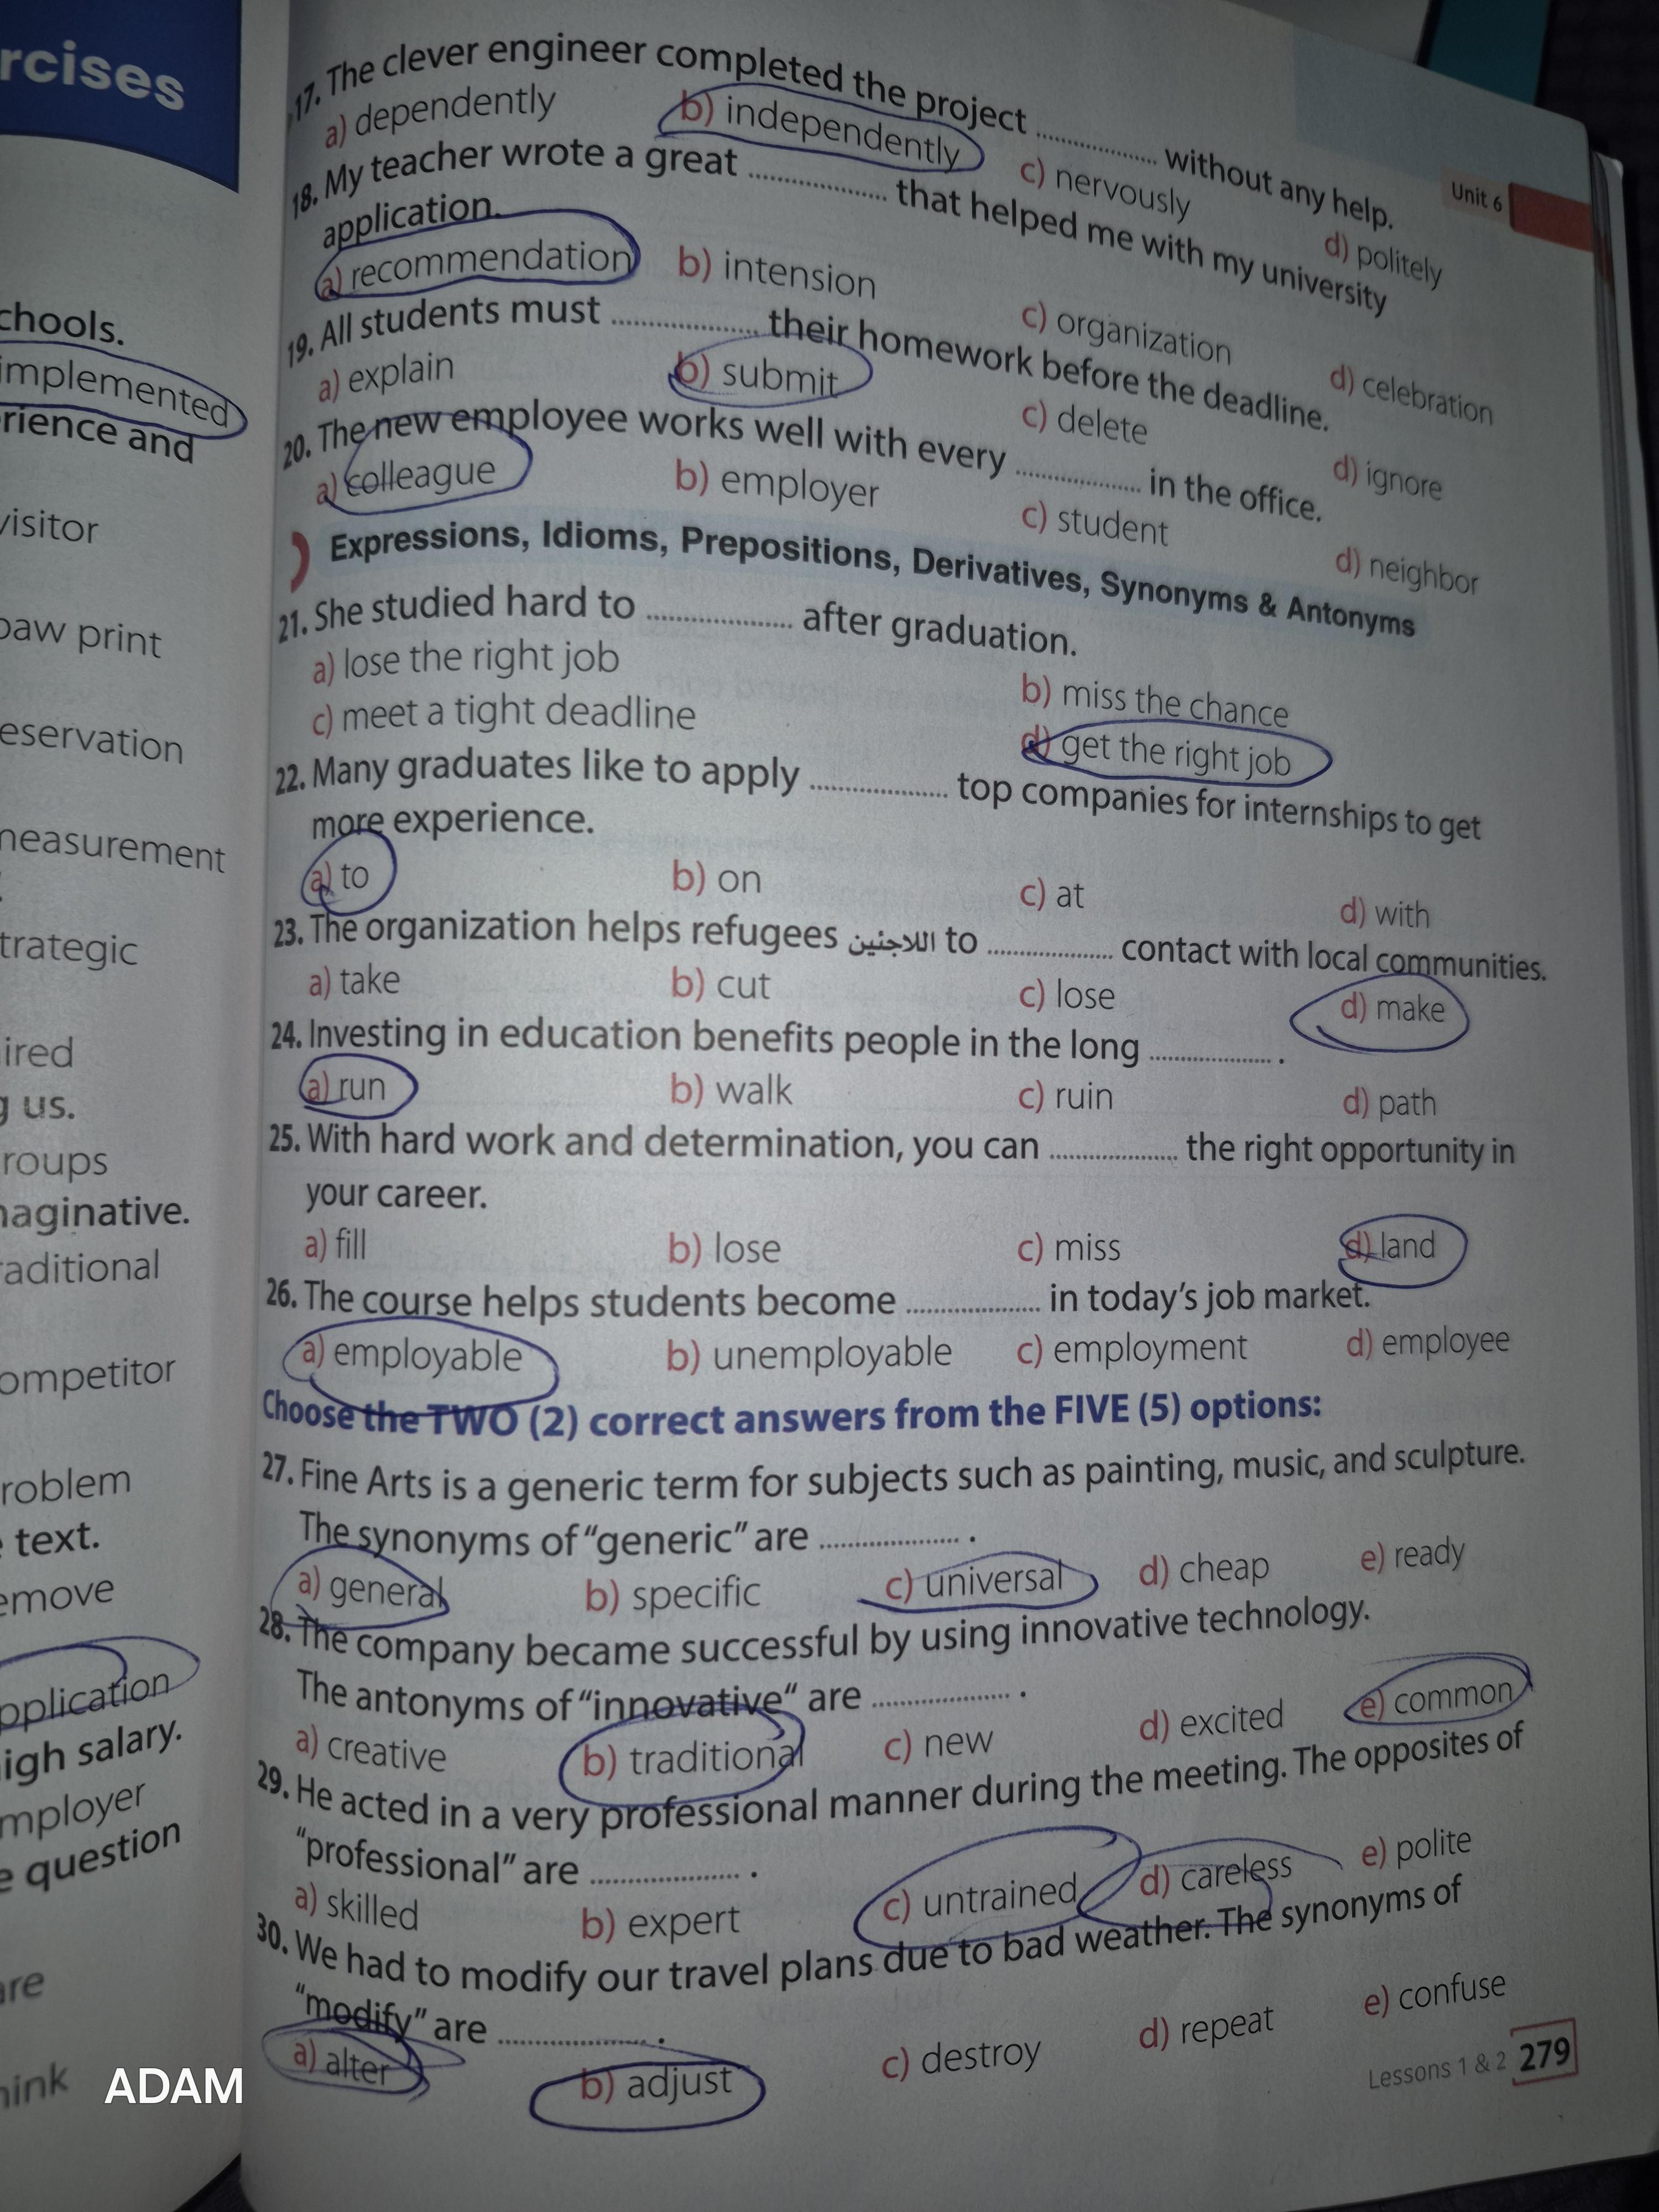 rcises
chools.
implemented
rience and
visitor
paw print
eservation
measurement
trategic
ired
g us.
roups
naginative.
raditional
ompetitor
roblem
text.
emove
pplication
igh salary.
mployer
e question
are
hink
ADAM
Unit 6
17. The clever engineer completed the project .................. without any help.
a) dependently b) independently c) nervously d) politely
18. My teacher wrote a great .................. that helped me with my university
application.
a) recommendation b) intension c) organization d) celebration
19. All students must .................. their homework before the deadline.
a) explain b) submit c) delete d) ignore
20. The new employee works well with every .................. in the office.
a) colleague b) employer c) student d) neighbor
Expressions, Idioms, Prepositions, Derivatives, Synonyms & Antonyms
21. She studied hard to .................. after graduation.
a) lose the right job b) miss the chance
c) meet a tight deadline d) get the right job
22. Many graduates like to apply .................. top companies for internships to get
more experience.
a) to b) on c) at d) with
23. The organization helps refugees اللاجئين to .................. contact with local communities.
a) take b) cut c) lose d) make
24. Investing in education benefits people in the long .................. .
a) run b) walk c) ruin d) path
25. With hard work and determination, you can .................. the right opportunity in
your career.
a) fill b) lose c) miss d) land
26. The course helps students become .................. in today's job market.
a) employable b) unemployable c) employment d) employee
Choose the TWO (2) correct answers from the FIVE (5) options:
27. Fine Arts is a generic term for subjects such as painting, music, and sculpture.
The synonyms of "generic" are .................. .
a) general b) specific c) universal d) cheap e) ready
28. The company became successful by using innovative technology.
The antonyms of "innovative" are .................. .
a) creative b) traditional c) new d) excited e) common
29. He acted in a very professional manner during the meeting. The opposites of
"professional" are .................. .
a) skilled b) expert c) untrained d) careless e) polite
30. We had to modify our travel plans due to bad weather. The synonyms of
"modify" are .................. .
a) alter b) adjust c) destroy d) repeat e) confuse
Lessons 1 & 2 279